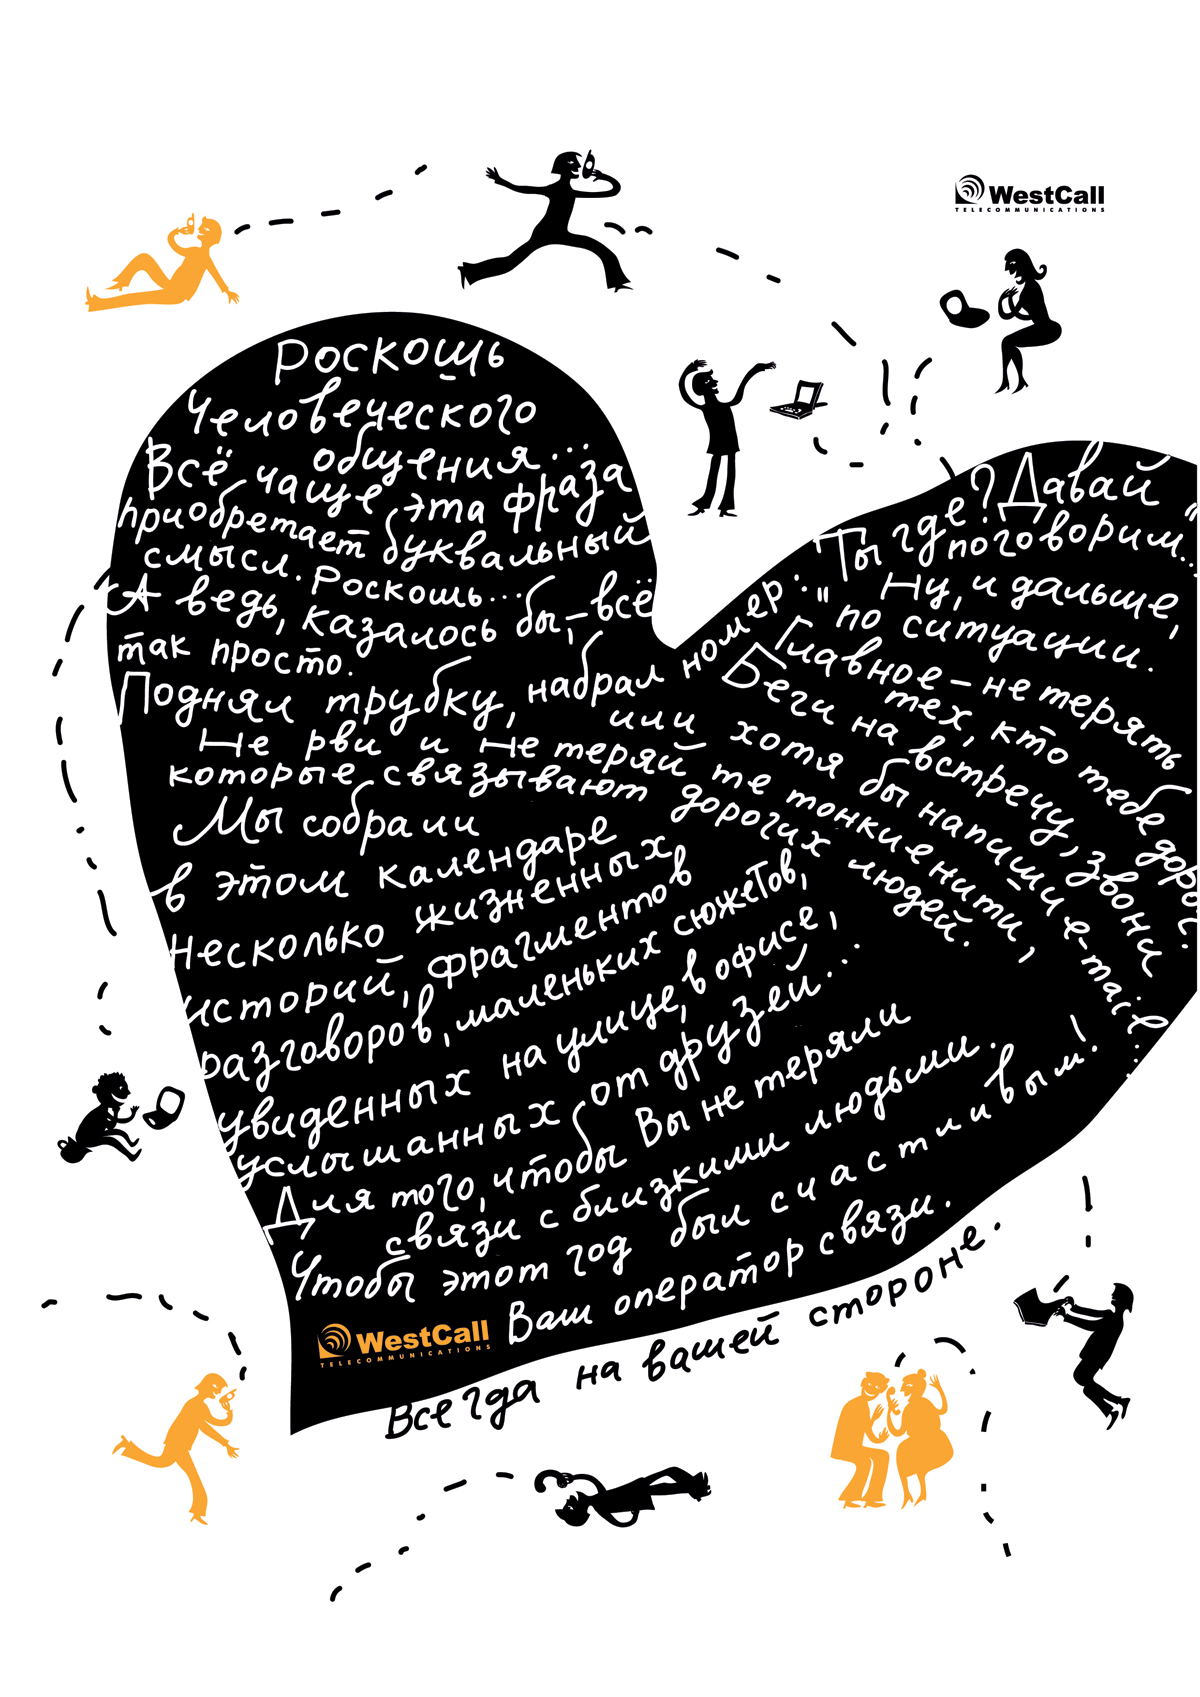 WestCall
TELECOMMUNICATIONS
Роскошь
Человеческого
общения...
Всё чаще эта фраза
приобретает буквальный
смысл. Роскошь...
А ведь, казалось бы,–всё
так просто.
Поднял трубку, набрал номер:
"Ты где? Давай
поговорим..."
Ну, и дальше,
"по ситуации.
Главное – не терять
тех, кто тебе дорог.
Беги на встречу, звони
или хотя бы напиши e-mail...
Не рви и не теряй те тонкие нити,
которые связывают дорогих людей.
Мы собрали
в этом календаре
несколько жизненных
историй, фрагментов
разговоров, маленьких сюжетов,
увиденных на улице, в офисе,
услышанных от друзей...
Для того, чтобы Вы не теряли
связи с близкими людьми.
Чтобы этот год был счастливым!
WestCall
TELECOMMUNICATIONS
Ваш оператор связи.
Всегда на вашей стороне.